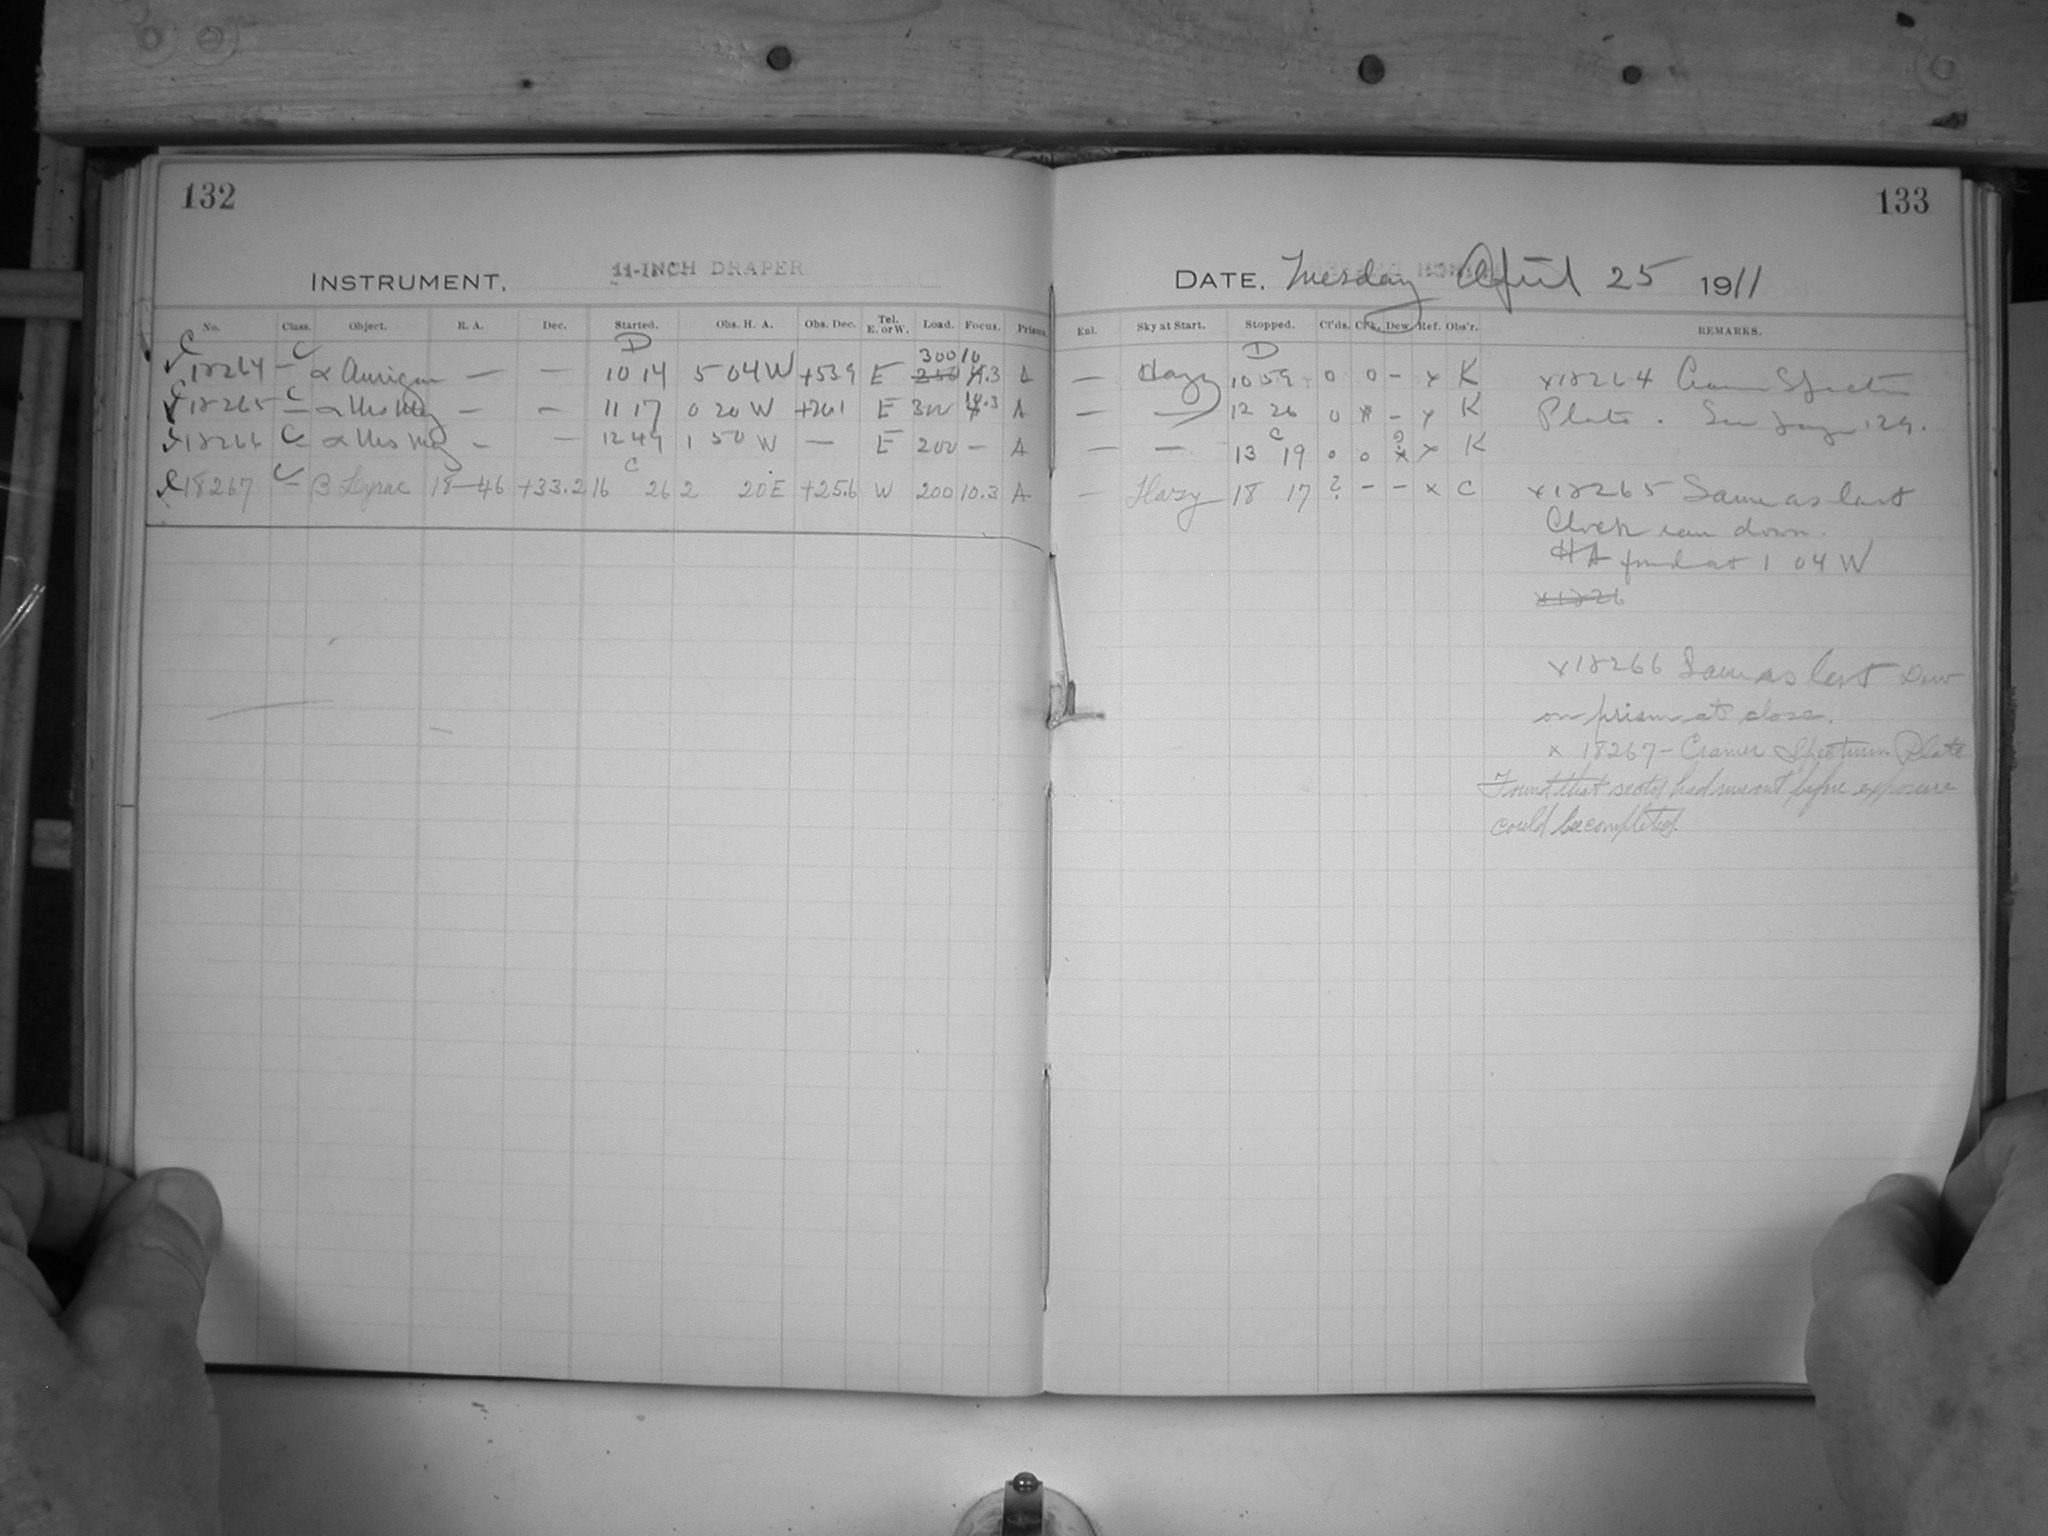 132
133
INSTRUMENT, 11-INCH DRAPER
DATE, Tuesday April 25 1911
No. Class. Object. R. A. Dec. Started. Obs. H. A. Obs. Dec. Tel. E. or W. Load. Focus. Prisms
Enl. Sky at Start. Stopped. Cl'ds. Clk. Dew. Ref. Obs'r. REMARKS.
C C D 300 10
D
18264 — α Aurigae — — 10 14 5 04 W +53.9 E 250 .3 A
— Hazy 10 59 0 0 — x K x18264 Cramer Spectrum
18265 C — — 11 17 0 20 W +26.1 E 300 10.3 A
— 12 26 0 * — x K Plate. See page 129.
18266 C — — 12 49 1 50 W — E 200 — A
— — 13 19 0 0 ? x x K
C 18267 C β Lyrae 18—46 +33.2 16 26 2 20 E +25.6 W 200 10.3 A
— Hazy 18 17 ? — — x C x18265 Same as last
Clock ran down.
HA found at 1 04 W
x1826
x18266 Same as last Dew
on prism at close.
x 18267 – Cramer Spectrum Plate
Found that sector had run out before exposure
could be completed.